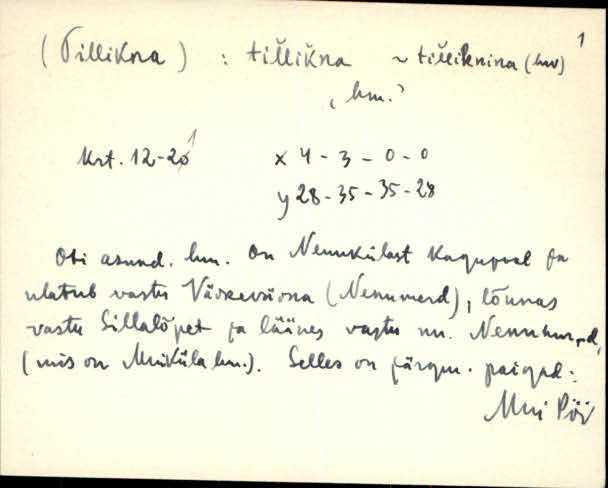 1
(Tillikna) : tĭllĭkna ~ tĭllĭknina (hw)
, hm.?
Krt. 12-20 x 4 - 3 - 0 - 0
y 28 - 35 - 35 - 28
Oti asund. hm. On Nennkülast Kagupool ja
ulatub vastu (Nennmerd), lõunas
vastu Sillalõpet ja läänes vastu nn.
(mis on Muiküla hm.). Selles on järgm. paigad:
Mui Pöi